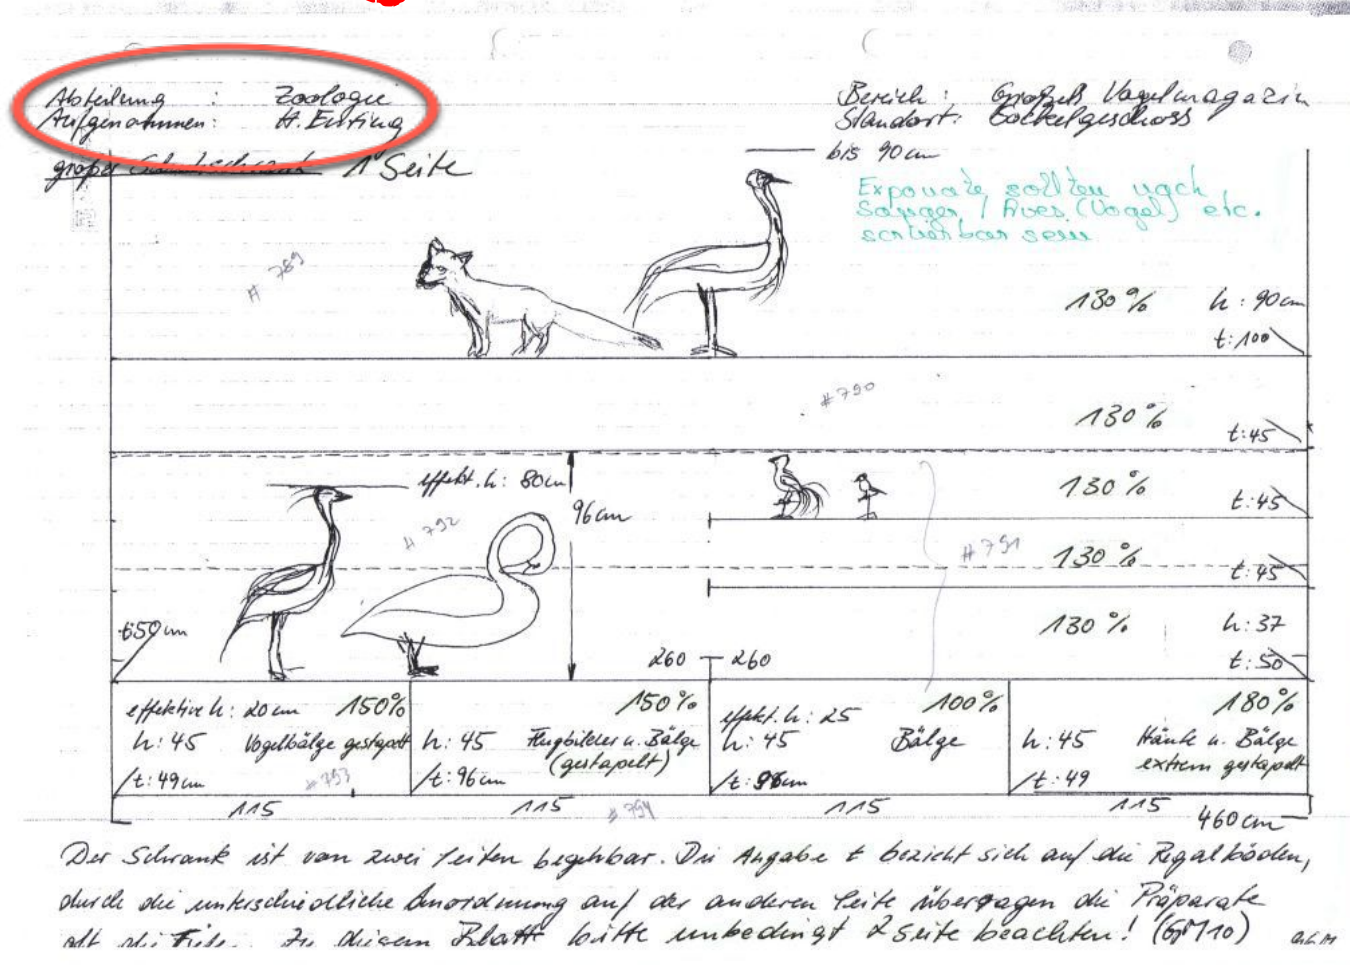 Abteilung : Zoologie
Aufgenommen: H. Eusting
Bereich: Großes Vogelmagazin
Standort: Sockelgeschoss
großer 1 Seite
bis 90 cm
Exponate sollten nach
Sänger / Aves (Vogel) etc.
sortierbar sein
# 789
130 % h: 90cm
t: 100
# 790
130 %
t: 45
effekt. h: 80cm
96cm
# 792
130 %
t: 45
# 791
130 %
t: 45
t 50 cm
130 % h: 37
t: 50
260 260
effektive h: 20cm 150%
h: 45 Vogelbälge gestapelt
t: 49cm # 793
150%
h: 45 Flugbilder u. Bälge
(gestapelt)
t: 96cm
effekt. h: 25 100%
h: 45 Bälge
t: 96cm
180%
h: 45 Häute u. Bälge
extrem gestapelt
t: 49
115 115 # 794 115 115
460 cm
Der Schrank ist von zwei Seiten begehbar. Die Angabe t bezieht sich auf die Regalböden,
durch die unterschiedliche Anordnung auf der anderen Seite überragen die Präparate
oft die Tiefe. Zu diesem Blatt bitte unbedingt 2 Seite beachten! (GM10)